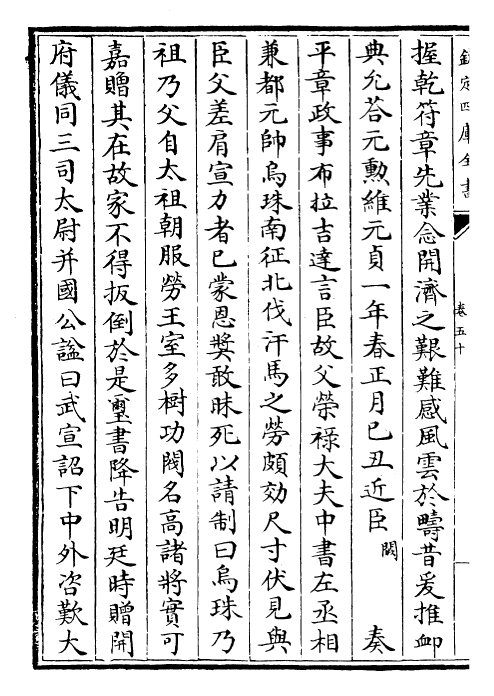 欽定四庫全書
卷五十
握乾符章先業念開濟之艱難感風雲於疇昔爰推卹
典允荅元勲維元貞一年春正月已丑近臣闕奏
平章政事布拉吉達言臣故父榮禄大夫中書左丞相
兼都元帥烏珠南征北伐汗馬之勞頗効尺寸伏見與
臣父差肩宣力者已蒙恩奬敢昧死以請制曰烏珠乃
祖乃父自太祖朝服勞王室多樹功閥名高諸將實可
嘉贈其在故家不得扳倒於是璽書降告明廷時贈開
府儀同三司太尉并國公諡曰武宣詔下中外咨歎大